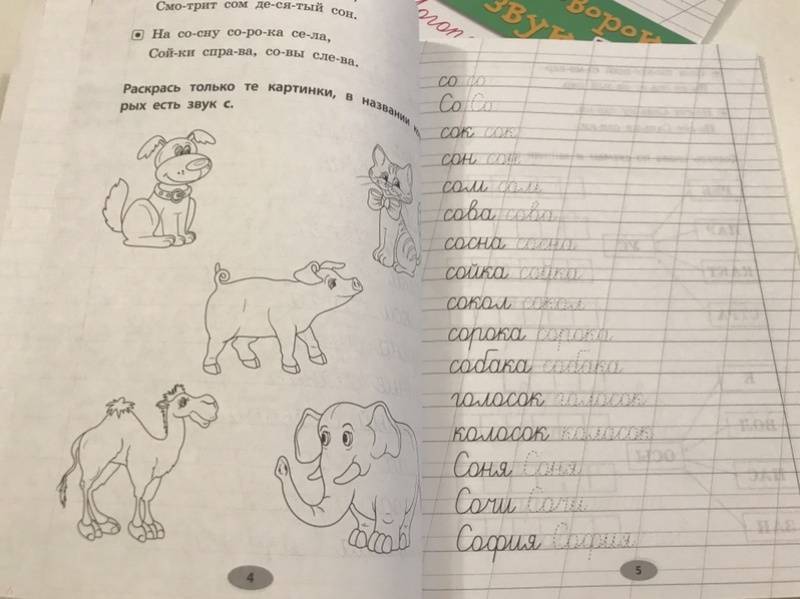 Смо-трит сом де-ся-тый сон.
На со-сну со-ро-ка се-ла,
Сой-ки спра-ва, со-вы сле-ва.
Раскрась только те картинки, в названии
рых есть звук с.
4
ворок
звук
со со
Со Со
сок сок
сон сон
сом сом
сова сова
сосна сосна
сойка сойка
сокол сокол
сорока сорока
собака собака
голосок голосок
колосок колосок
Соня Соня
Сочи Сочи
София София
5